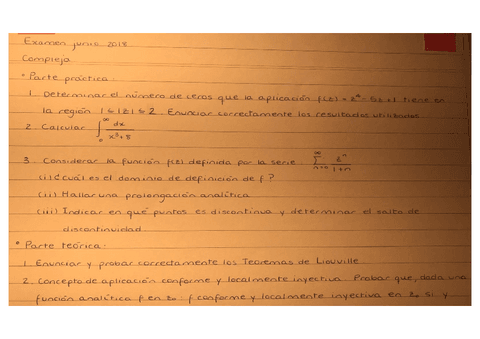 Examen junio 2018
Compleja
• Parte práctica:
1. Determinar el número de ceros que la aplicación f(z) = z⁴ - 5z + 1 tiene en
la región 1 ≤ |z| ≤ 2. Enunciar correctamente los resultados utilizados
2. Calcular ∫₀^∞ dx / x³+8
3. Considerar la función f(z) definida por la serie: ∑_{n=0}^∞ zⁿ / 1+n
(i) ¿Cuál es el dominio de definición de f?
(ii) Hallar una prolongación analítica
(iii) Indicar en qué puntos es discontinua y determinar el salto de
discontinuidad.
• Parte teórica:
1. Enunciar y probar correctamente los Teoremas de Liouville
2. Concepto de aplicación conforme y localmente inyectiva. Probar que, dada una
función analítica f en z₀: f conforme y localmente inyectiva en z₀ si y